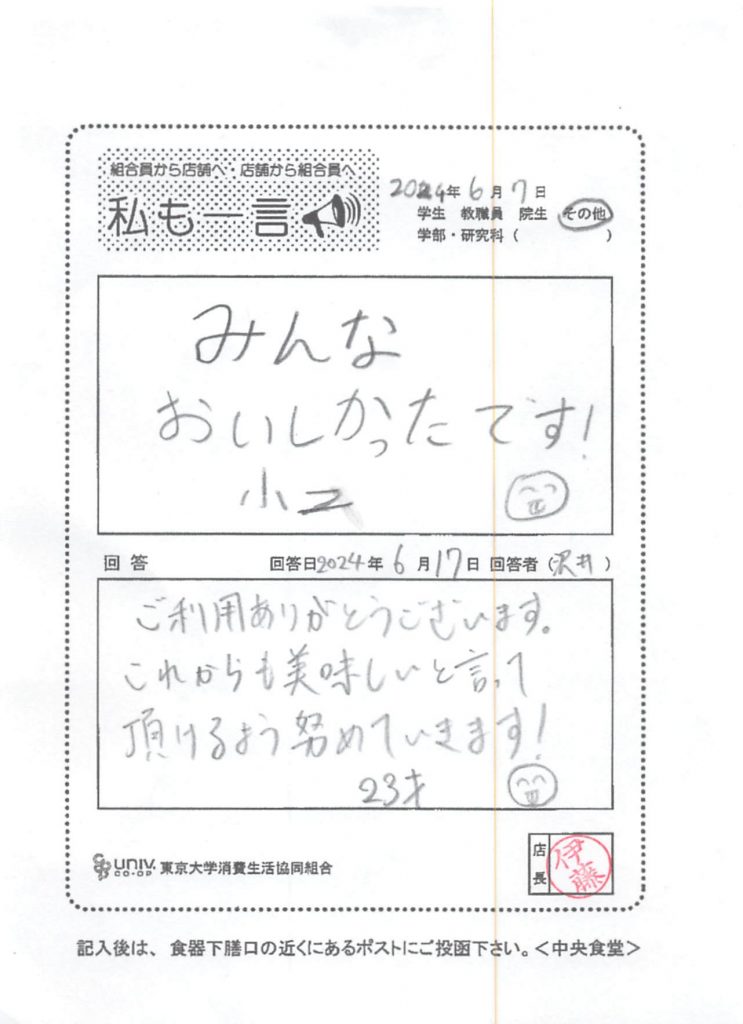 組合員から店舗へ・店舗から組合員へ
私も一言
2024年 6月 7日
学生 教職員 院生 その他
学部・研究科（ ）
みんな
おいしかったです!
小二
回答 回答日2024年 6月17日 回答者（沢井）
ご利用ありがとうございます。
これからも美味しいと言って
頂けるよう努めていきます!
23才
UNIV. CO-OP 東京大学消費生活協同組合
店長 伊藤
記入後は、食器下膳口の近くにあるポストにご投函下さい。＜中央食堂＞